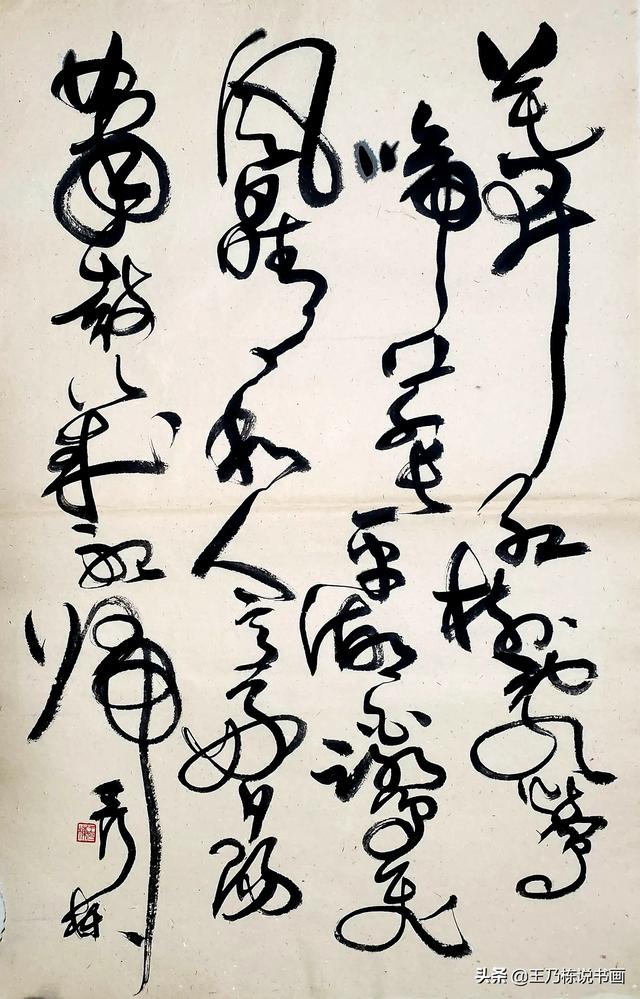 花开红树乱莺
啼草长平湖白鹭飞
风日晴和人意好夕阳
箫鼓几船归
头条 @王乃栋说书画